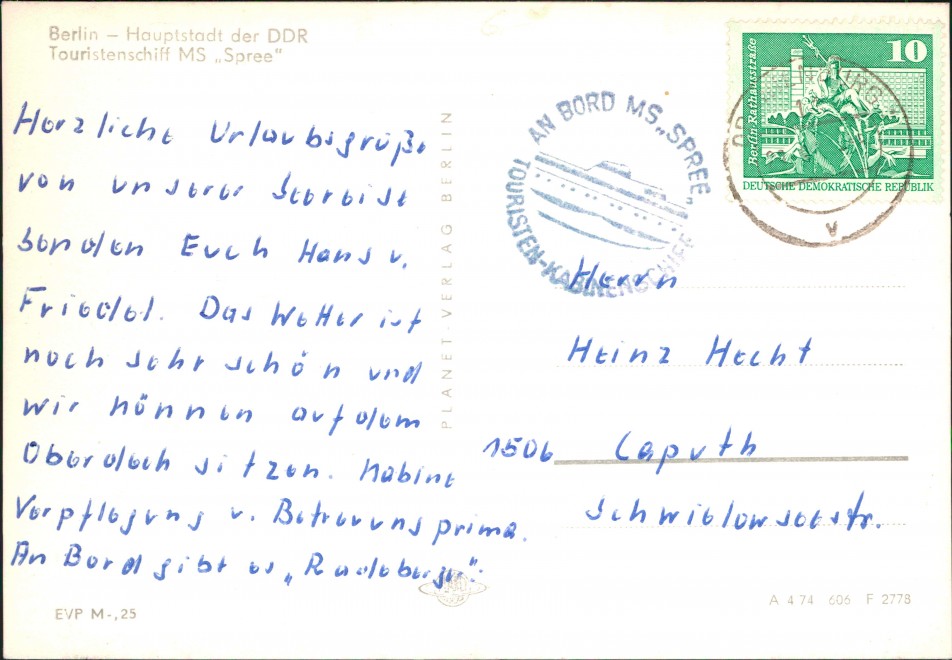 Berlin – Hauptstadt der DDR
Touristenschiff MS „Spree“
Herzliche Urlaubsgrüße
von unserer Seereise
senden Euch Hans u.
Friedel. Das Wetter ist
noch sehr schön und
wir können auf dem
Oberdeck sitzen. Kabine
Verpflegung u. Betreuuns prima.
An Bord gibt es „Radeberger“.
EVP M-,25
PLANET-VERLAG BERLIN
AN BORD MS „SPREE“
TOURISTEN-KABINENSCHIFF
10
Berlin·Rathausstraße
DEUTSCHE DEMOKRATISCHE REPUBLIK
v
Herrn
Heinz Hecht
1506 Caputh
Schwielowseestr.
A 4 74 606 F 2778